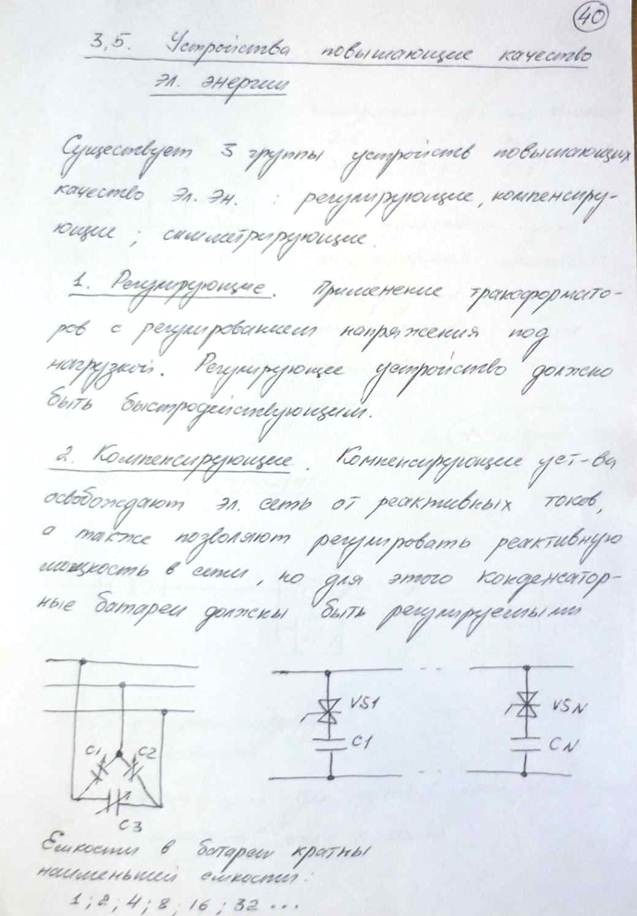 40
3,5. Устройства повышающие качество
эл. энергии
Существует 3 группы устройств повышающих
качество эл. эн. : регулирующие, компенсиру-
ющие ; симметрирующие.
1. Регулирующие. Применение трансформато-
ров с регулированием напряжения под
нагрузкой. Регулирующее устройство должно
быть быстродействующим.
2. Компенсирующие. Компенсирующие уст-ва
освобождают эл. сеть от реактивных токов,
а также позволяют регулировать реактивную
мощность в сети, но для этого конденсатор-
ные батареи должны быть регулируемыми
VS1 VSN
C1 C2 C1 CN
C3
Емкости в батареи кратны
наименьшей емкости:
1; 2; 4; 8; 16; 32 ...